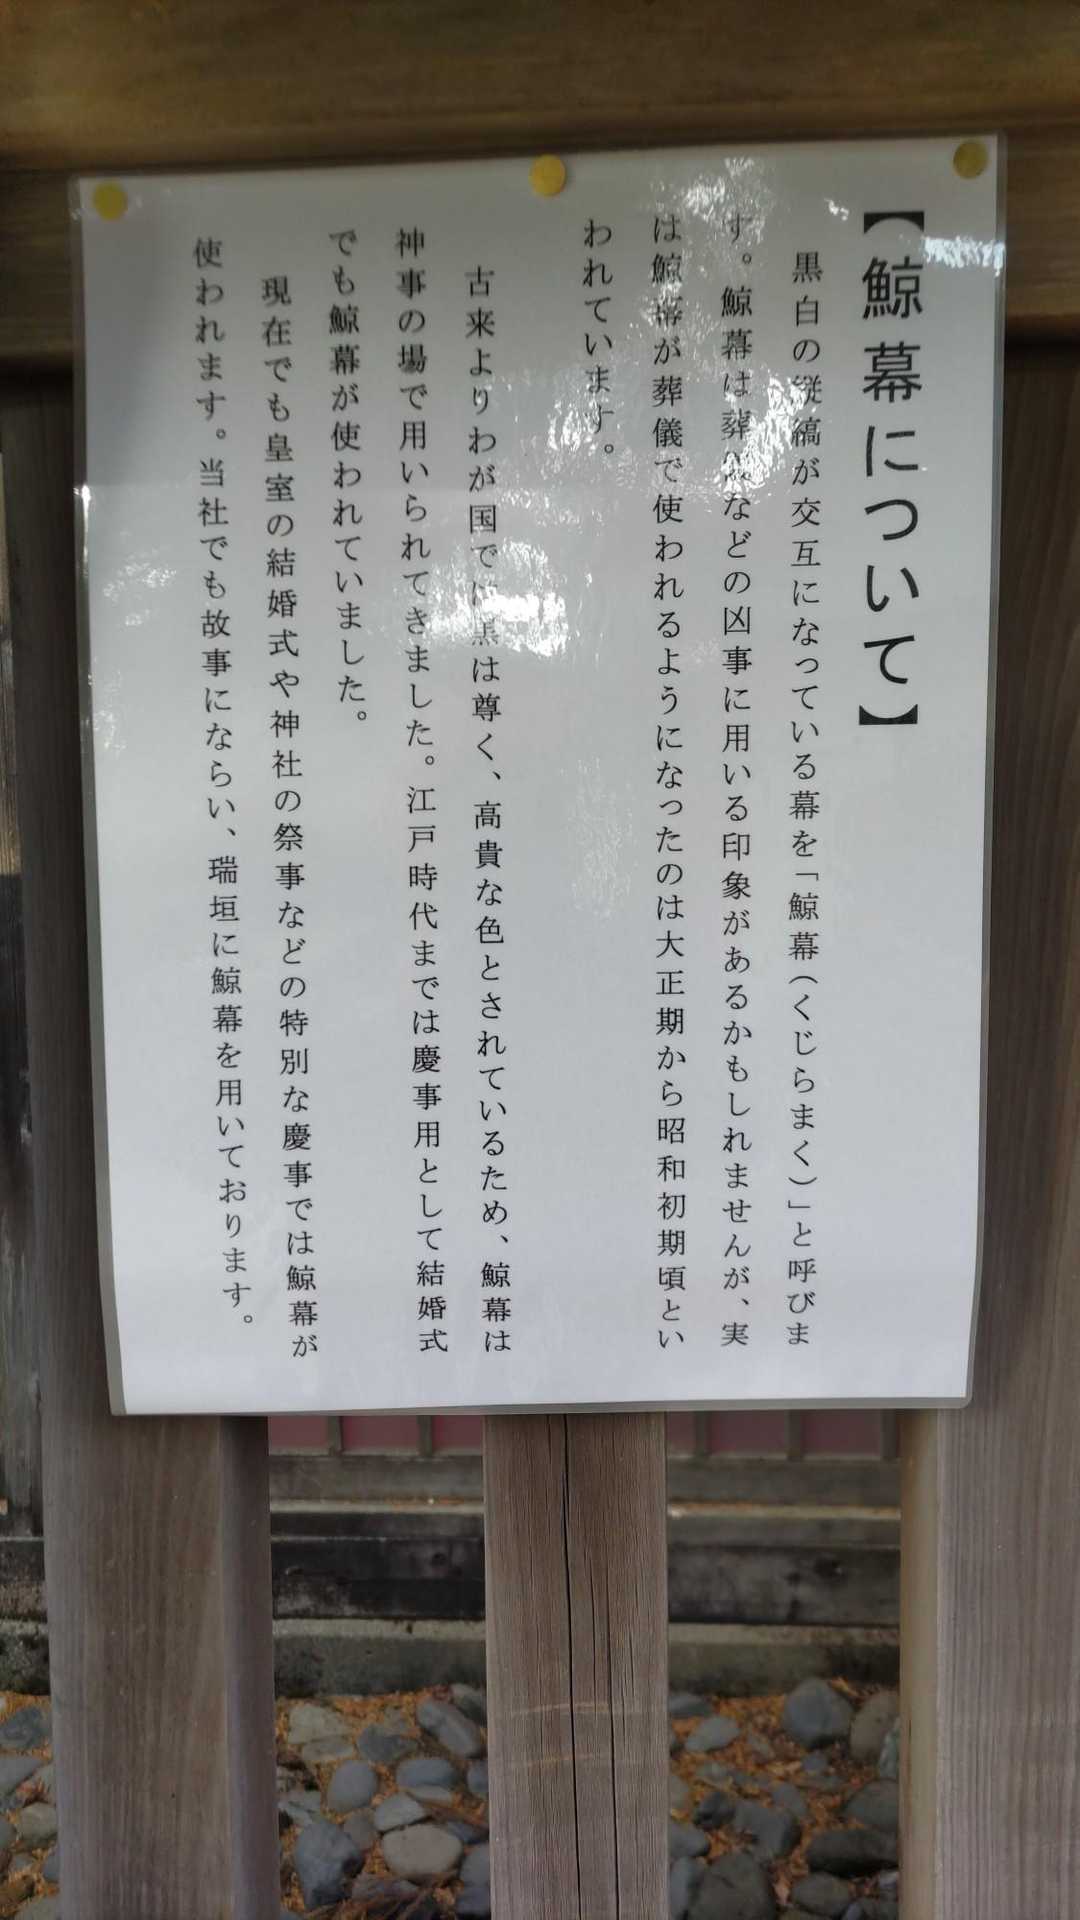 【鯨幕について】
黒白の縦縞が交互になっている幕を「鯨幕（くじらまく）」と呼びま
す。鯨幕は葬儀などの凶事に用いる印象があるかもしれませんが、実
は鯨幕が葬儀で使われるようになったのは大正期から昭和初期頃とい
われています。
古来よりわが国では黒は尊く、高貴な色とされているため、鯨幕は
神事の場で用いられてきました。江戸時代までは慶事用として結婚式
でも鯨幕が使われていました。
現在でも皇室の結婚式や神社の祭事などの特別な慶事では鯨幕が
使われます。当社でも故事にならい、瑞垣に鯨幕を用いております。